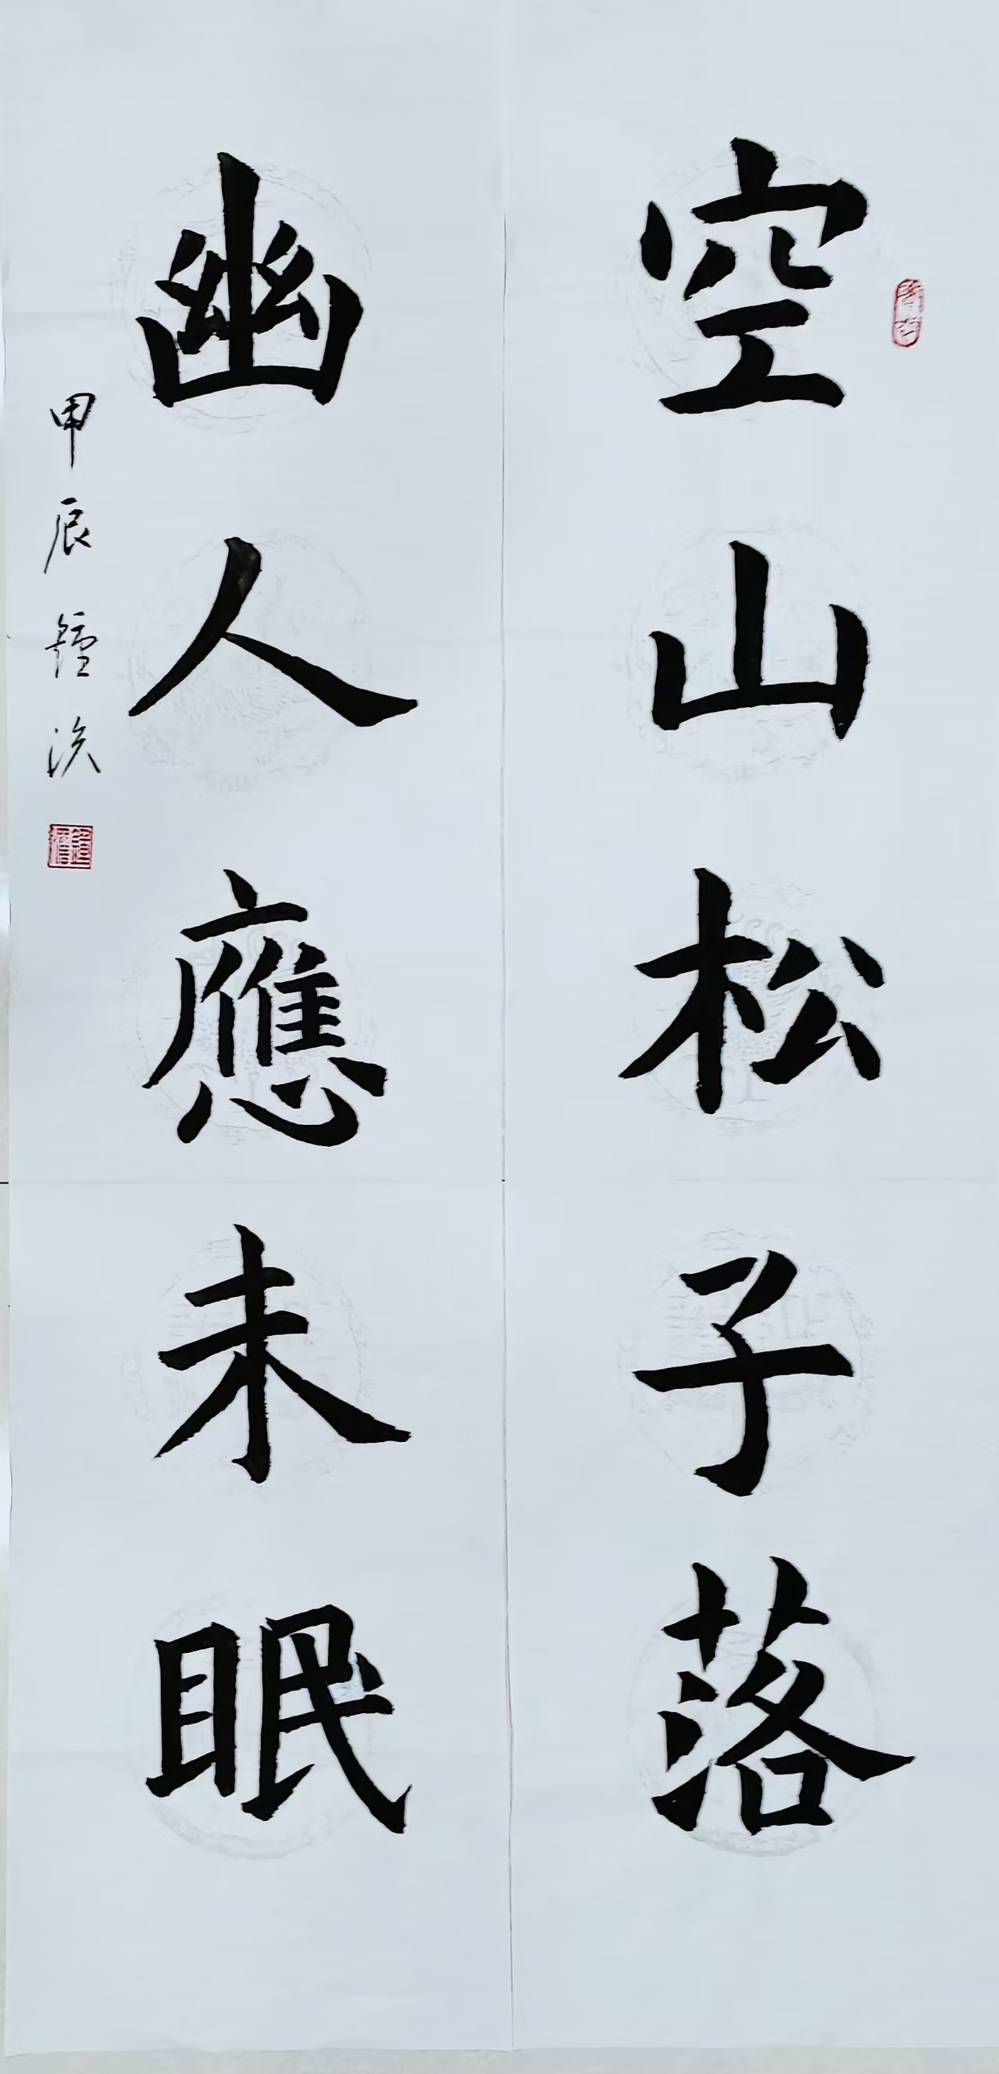 空山松子落
幽人應未眠
甲辰